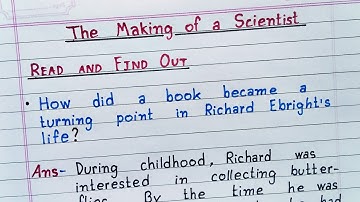 The Making of a Scientist
READ AND FIND OUT
• How did a book became a
turning point in Richard Ebright's
life?
Ans- During childhood, Richard was
interested in collecting butter-
flies. By the time he was
had